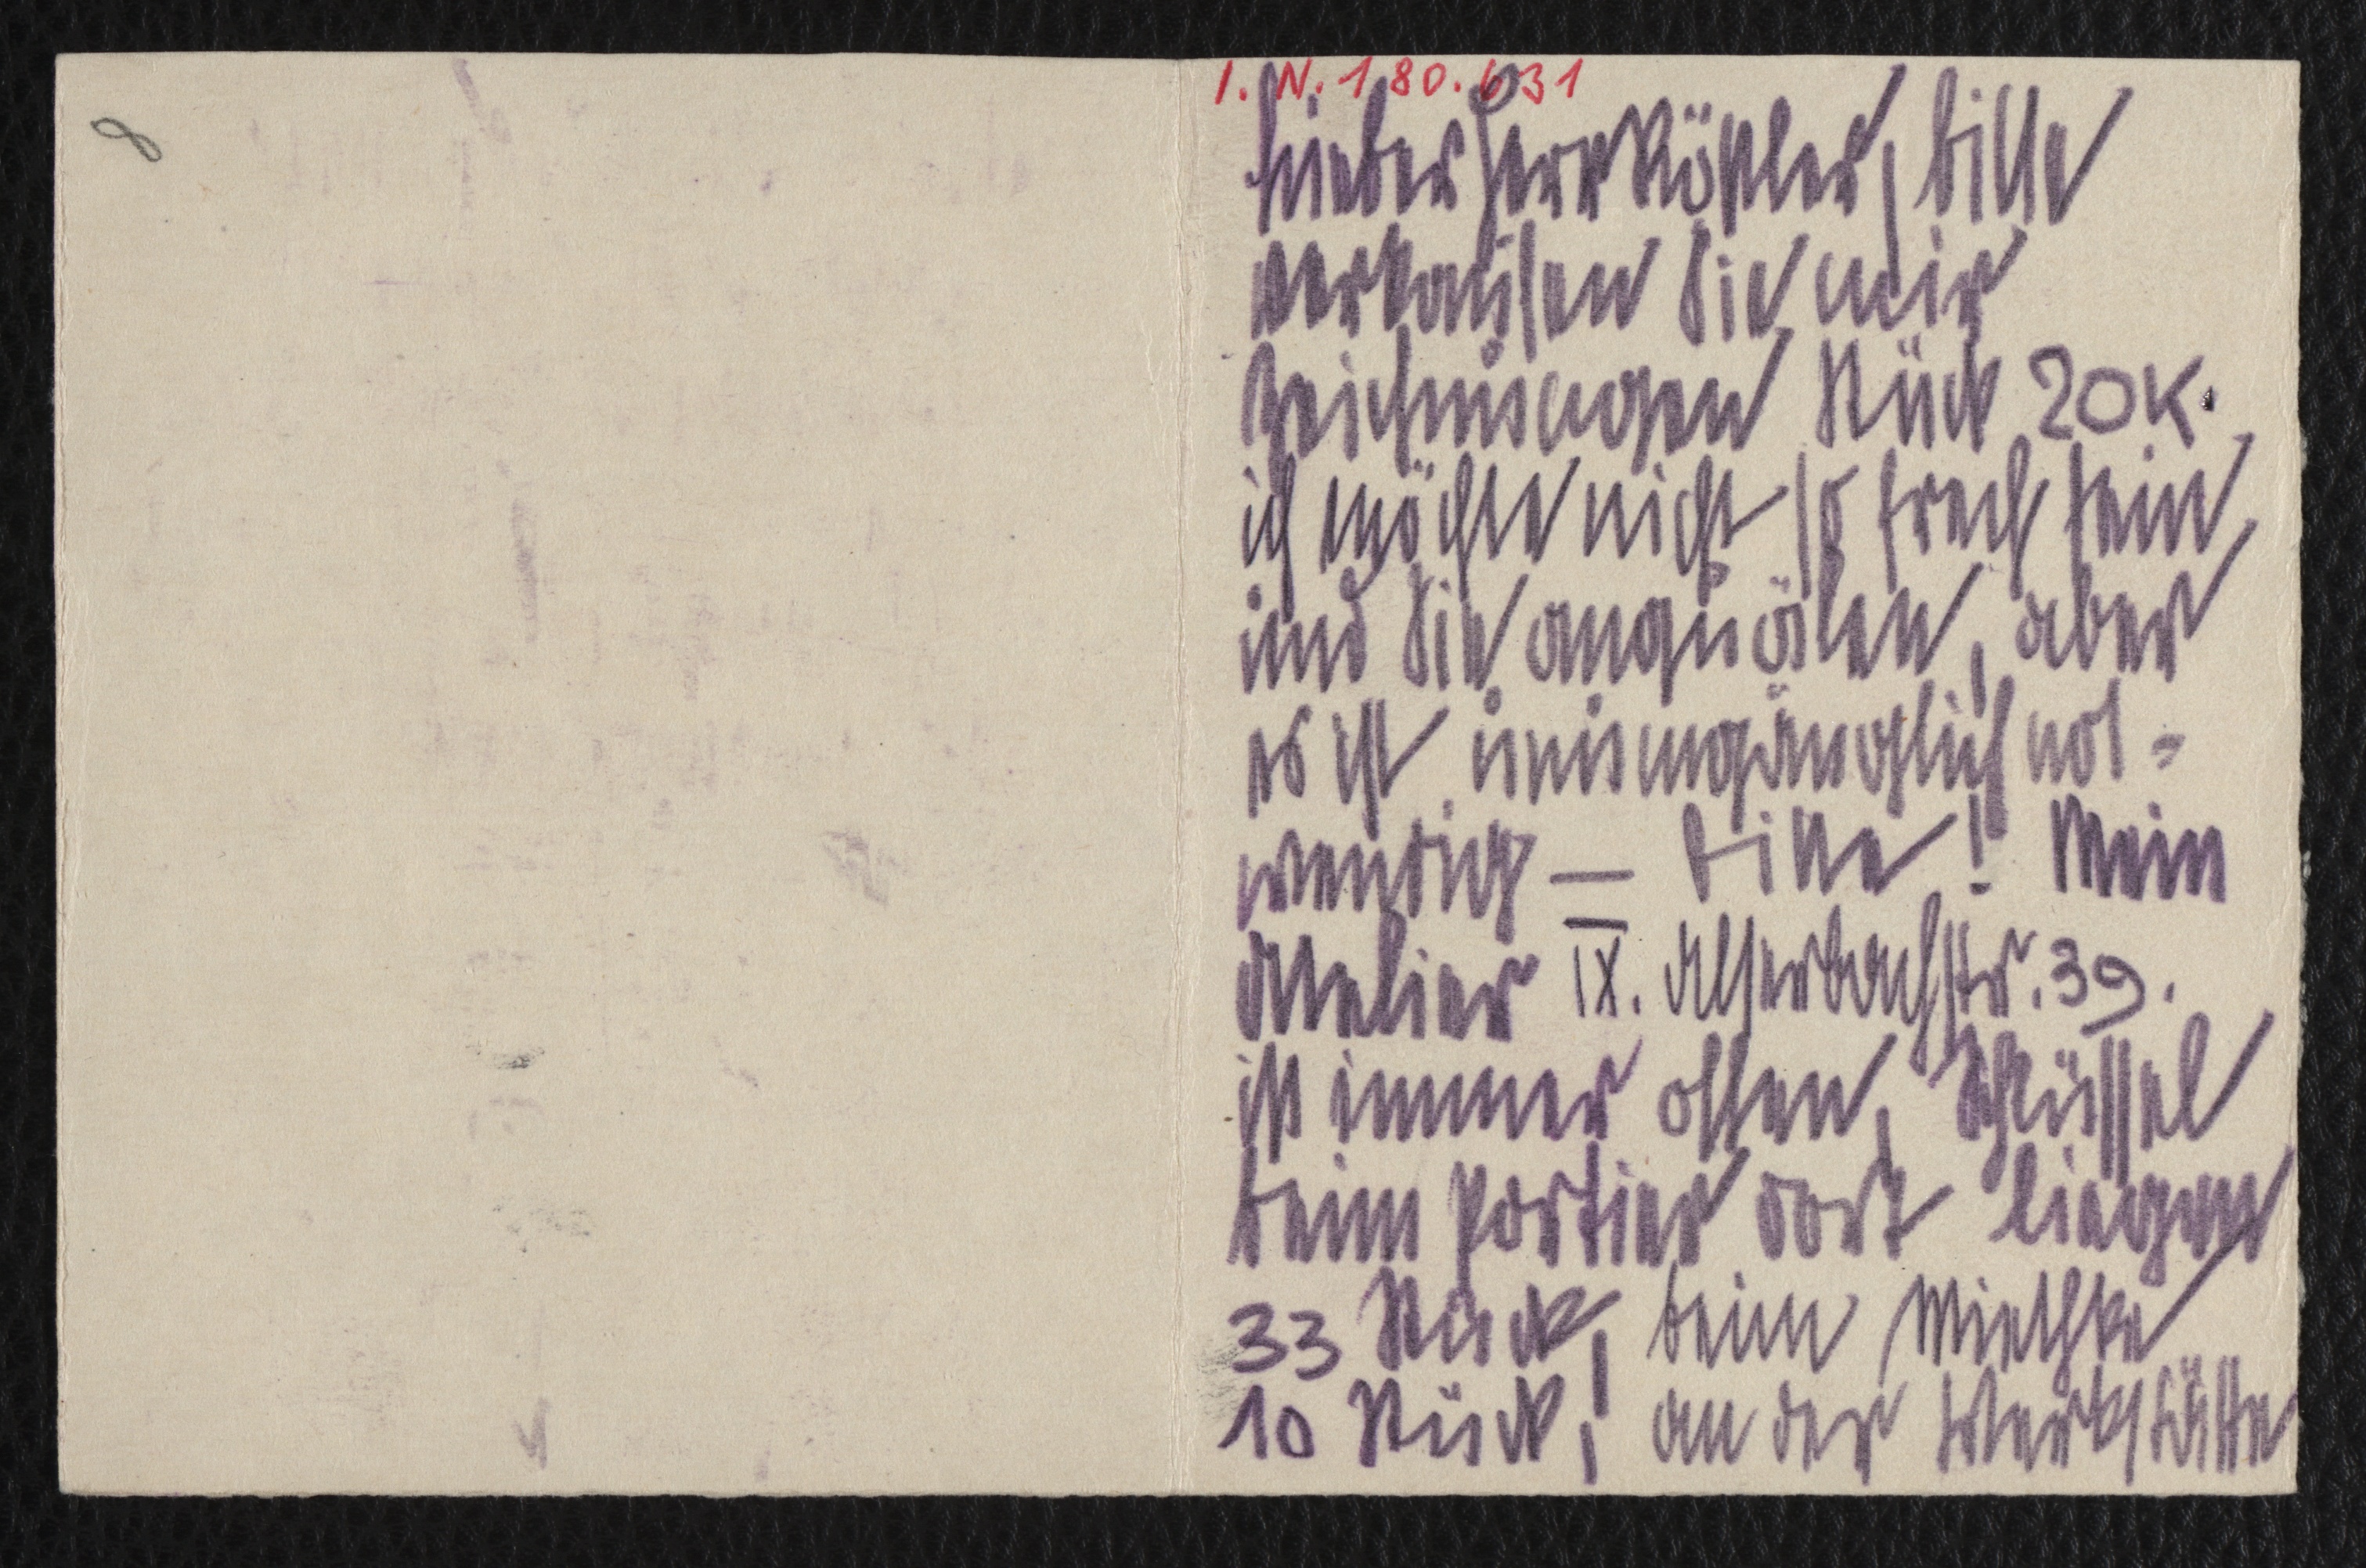 8
I.N.180.631
Lieber Herr Rößler, bitte
verkaufen Sie mir
Zeichnungen Stück 20K.
ich möchte nicht so frech sein
und Sie anquälen, aber
es ist unumgänglich not-
wendig — bitte! Mein
Atelier IX. Alserbachstr. 39.
ist immer offen, Schlüssel
beim Portier dort liegen
33 Stück, beim Miethke
10 Stück, an der Werkstätte